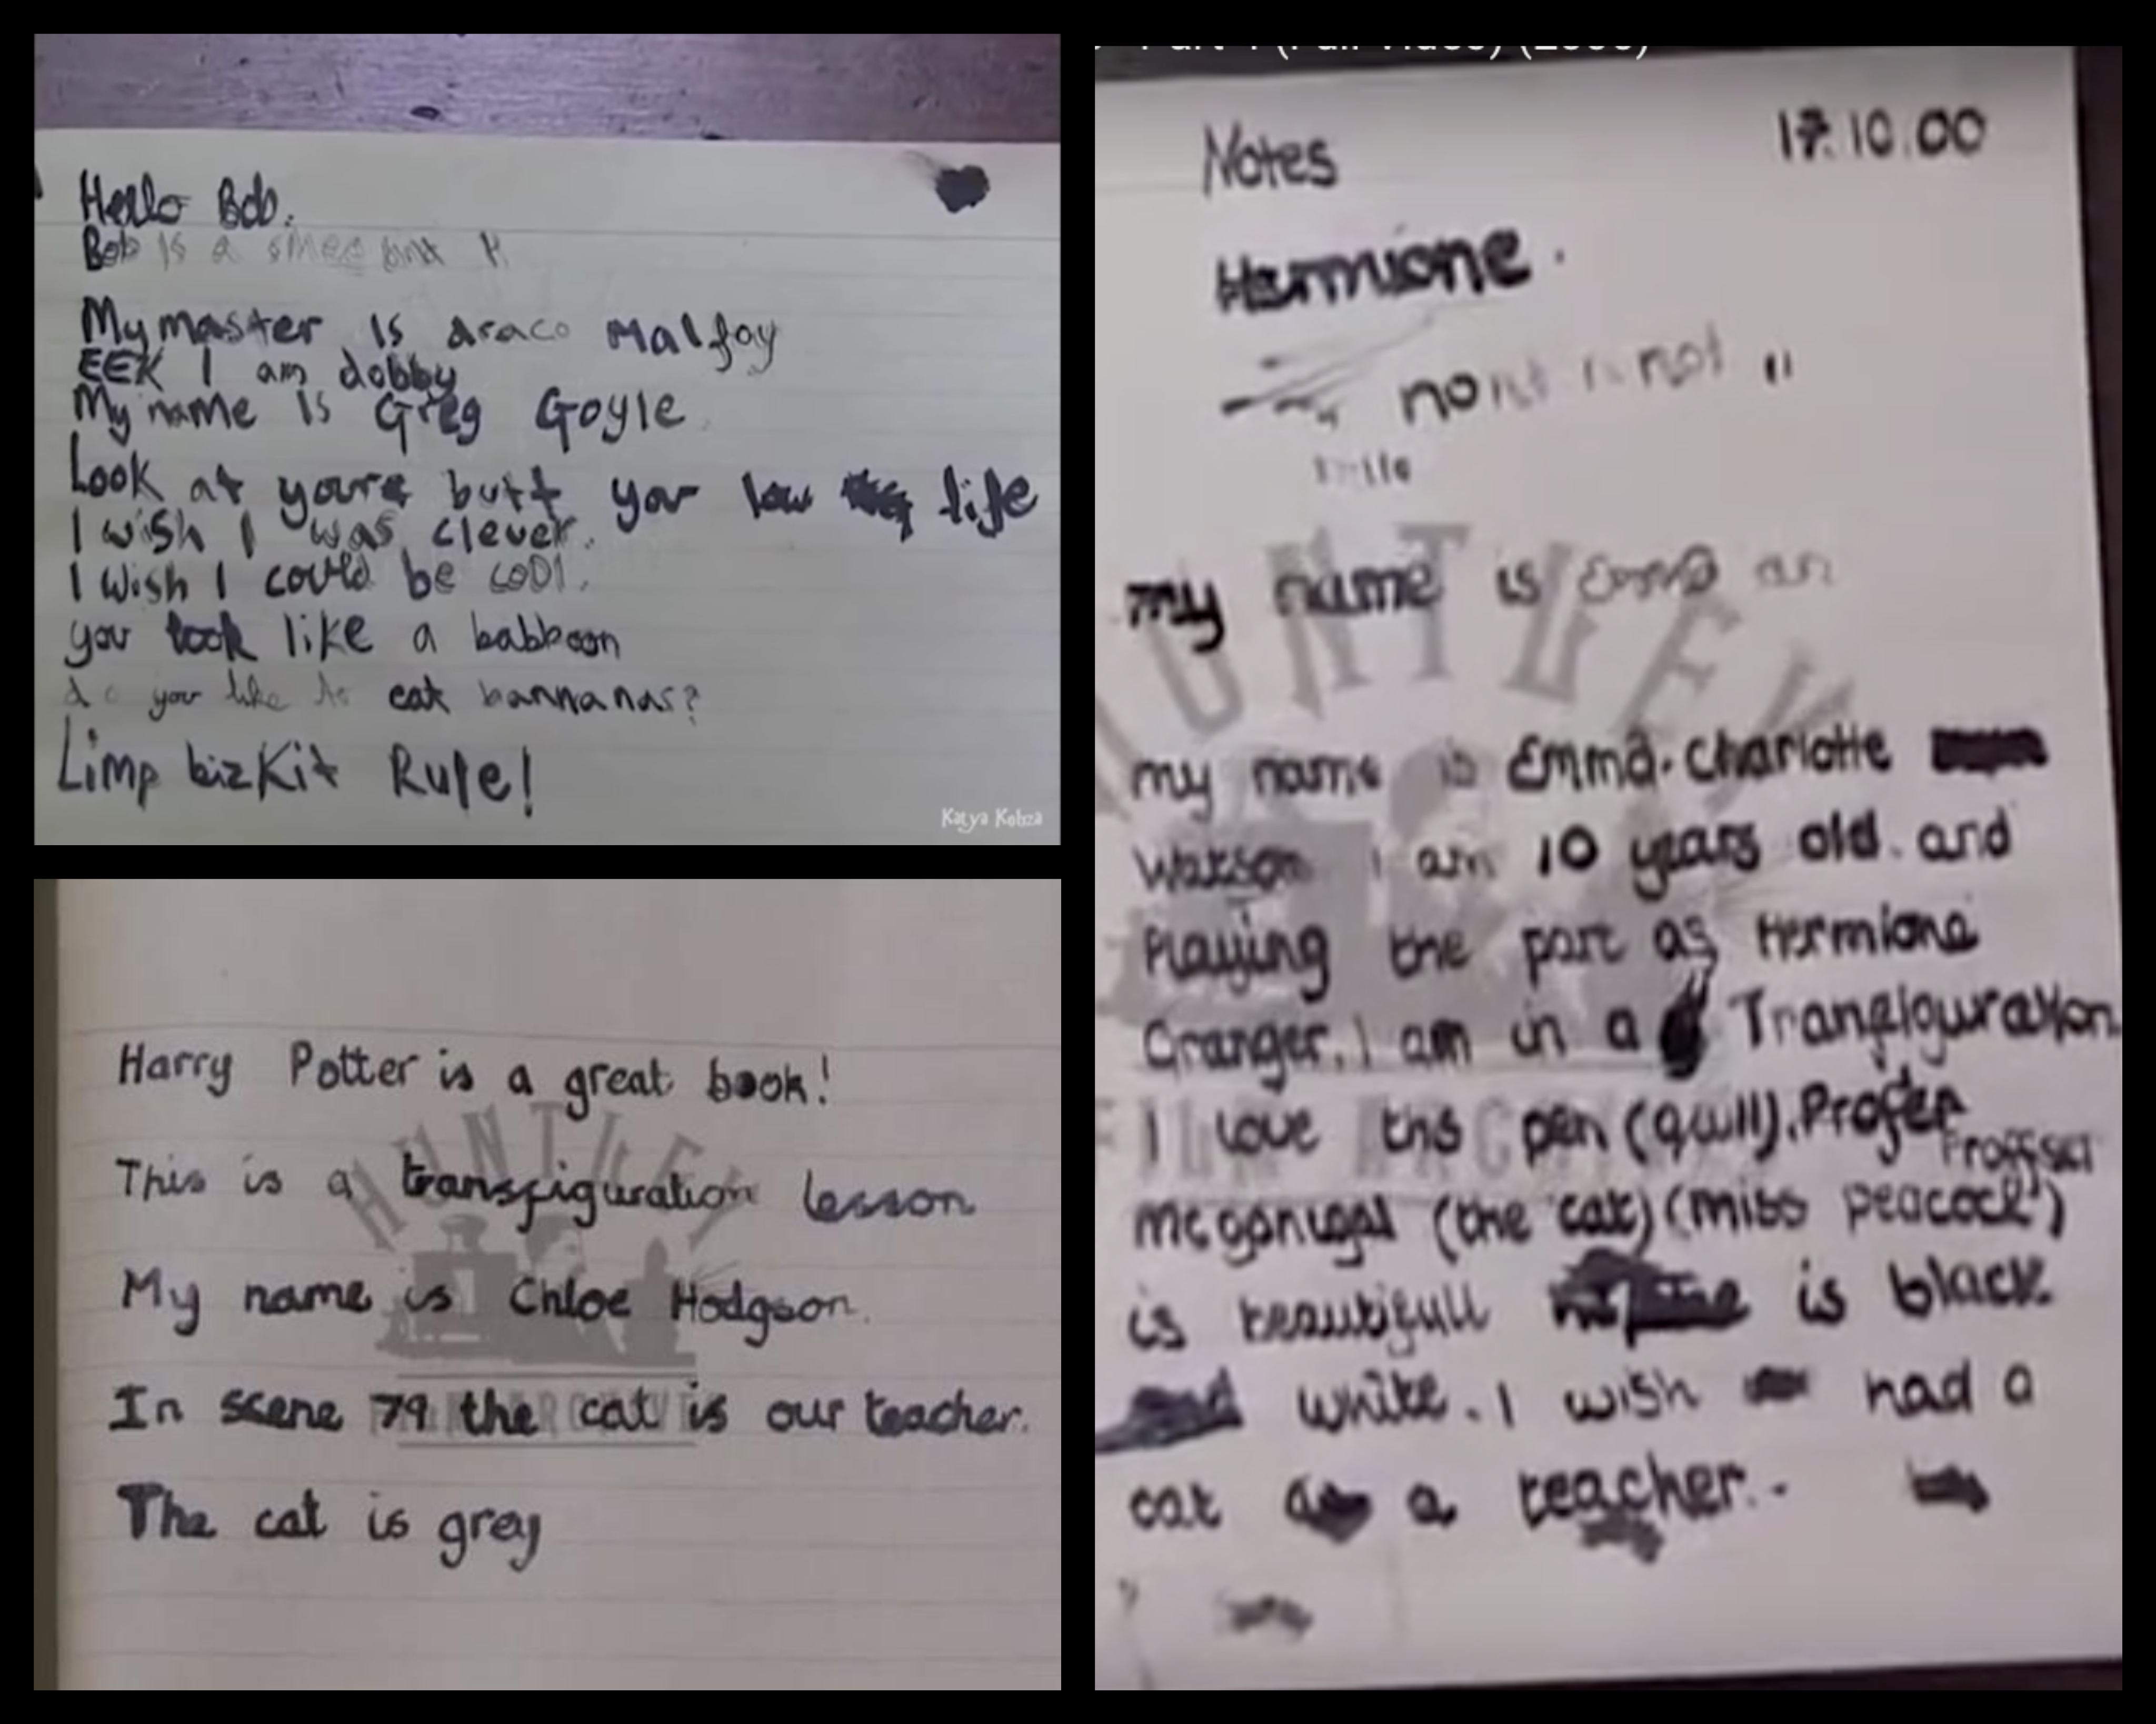 Hello Bob.
Bob is a
My master is draco Malfoy
EEK I am dobby
My name is Greg Goyle.
Look at youre butt you low life
I wish I was clever.
I wish I could be cool.
you look like a babboon
do you like to eat bannanas?
Limp bizkit Rule!
Katya Kobza
Harry Potter is a great book!
This is a transfiguration lesson
My name is Chloe Hodgson.
In scene 79 the cat is our teacher.
The cat is grey
HUNTLEY
FILM ARCHIVES
Part 1 (Full Video) (2000)
Notes 17.10.00
Hermione.
not
my name is
HUNTLEY
my name is Emma. Charlotte
Watson I am 10 years old. and
Playing the part as Hermione
Granger. I am in a Tranfiguration
I love this pen (quill). Profer
Proffser
mcgonigal (the cat) (miss peacock)
is beautifull is black
white. I wish had a
cat a teacher.